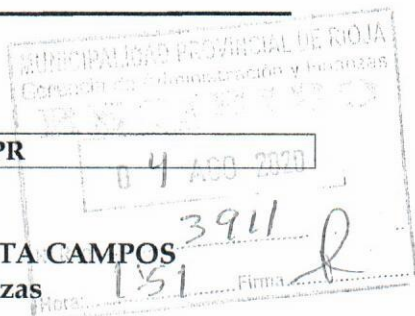 MUNICIPALIDAD PROVINCIAL DE RIOJA
Gerencia de Administración y Finanzas
RECIBIDO
PR
04 AGO 2020
3911
TA CAMPOS
zas
Hora: 1:51 Firma